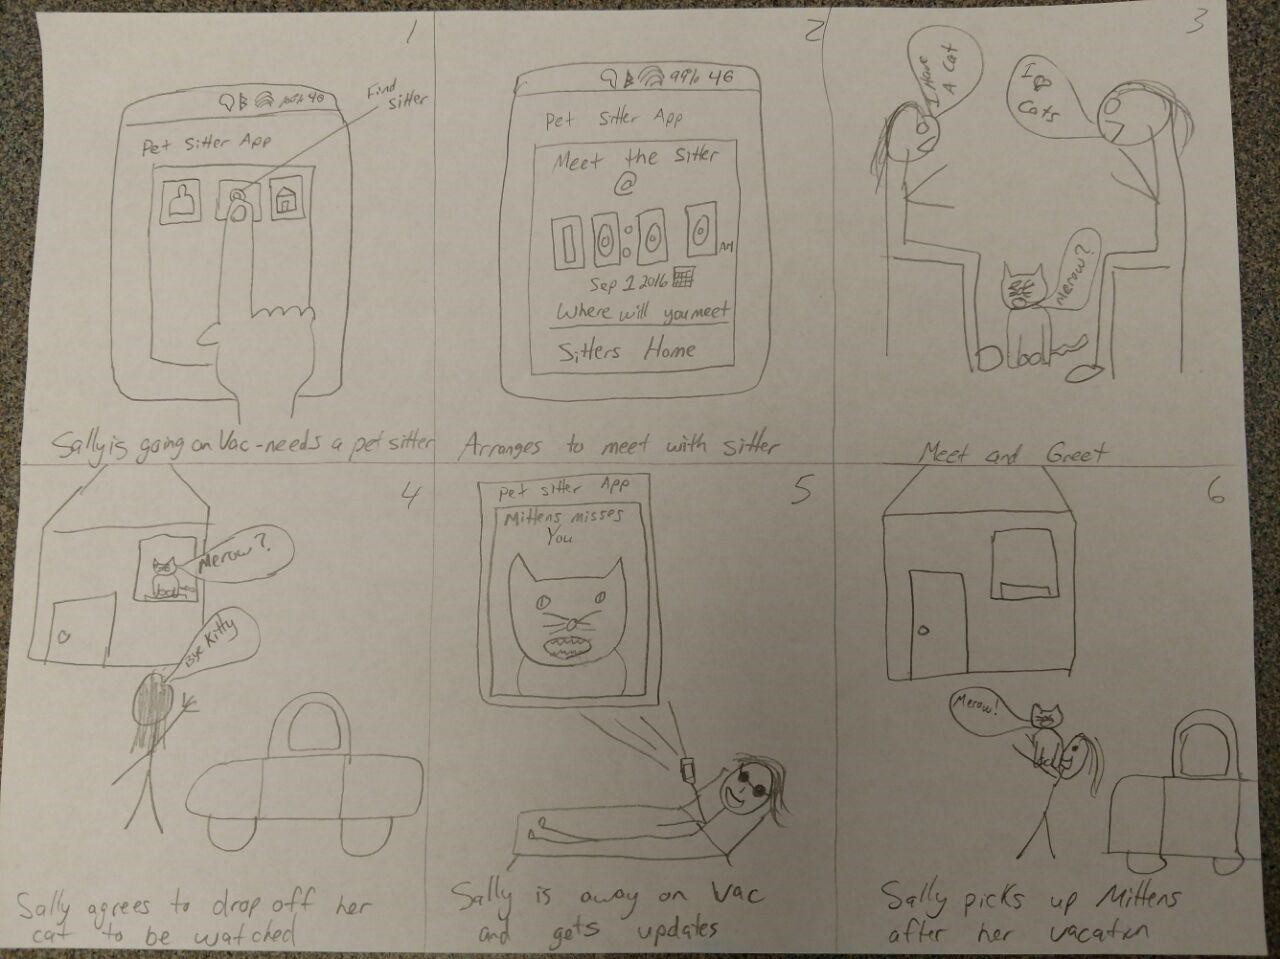 1
100% 4G
Find
Sitter
Pet Sitter App
Sally is going on Vac - needs a pet sitter
2
99% 4G
Pet Sitter App
Meet the Sitter
@
10:00 AM
Sep 1 2016
Where will you meet
Sitters Home
Arranges to meet with sitter
3
I Have
A Cat
I
Cats
Merow?
Meet and Greet
4
Merow?
Bye Kitty
Sally agrees to drop off her
cat to be watched
5
Pet Sitter App
Mittens misses
You
Sally is away on Vac
and gets updates
6
Merow!
Sally picks up Mittens
after her vacation